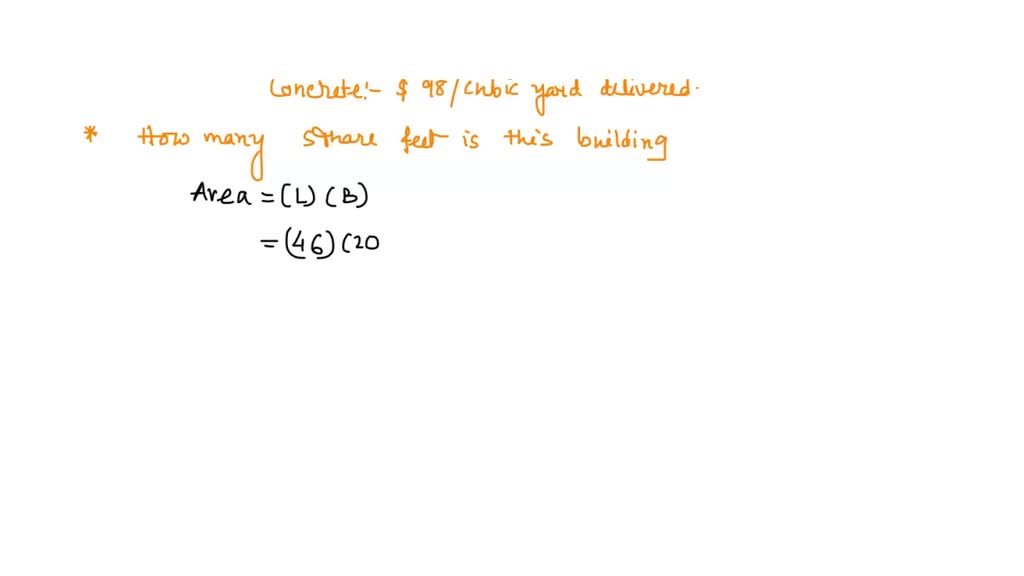 Concrete:- $ 98/cubic yard delivered.
* How many sqhare feet is this building
Area = (L) (B)
= (46) (20